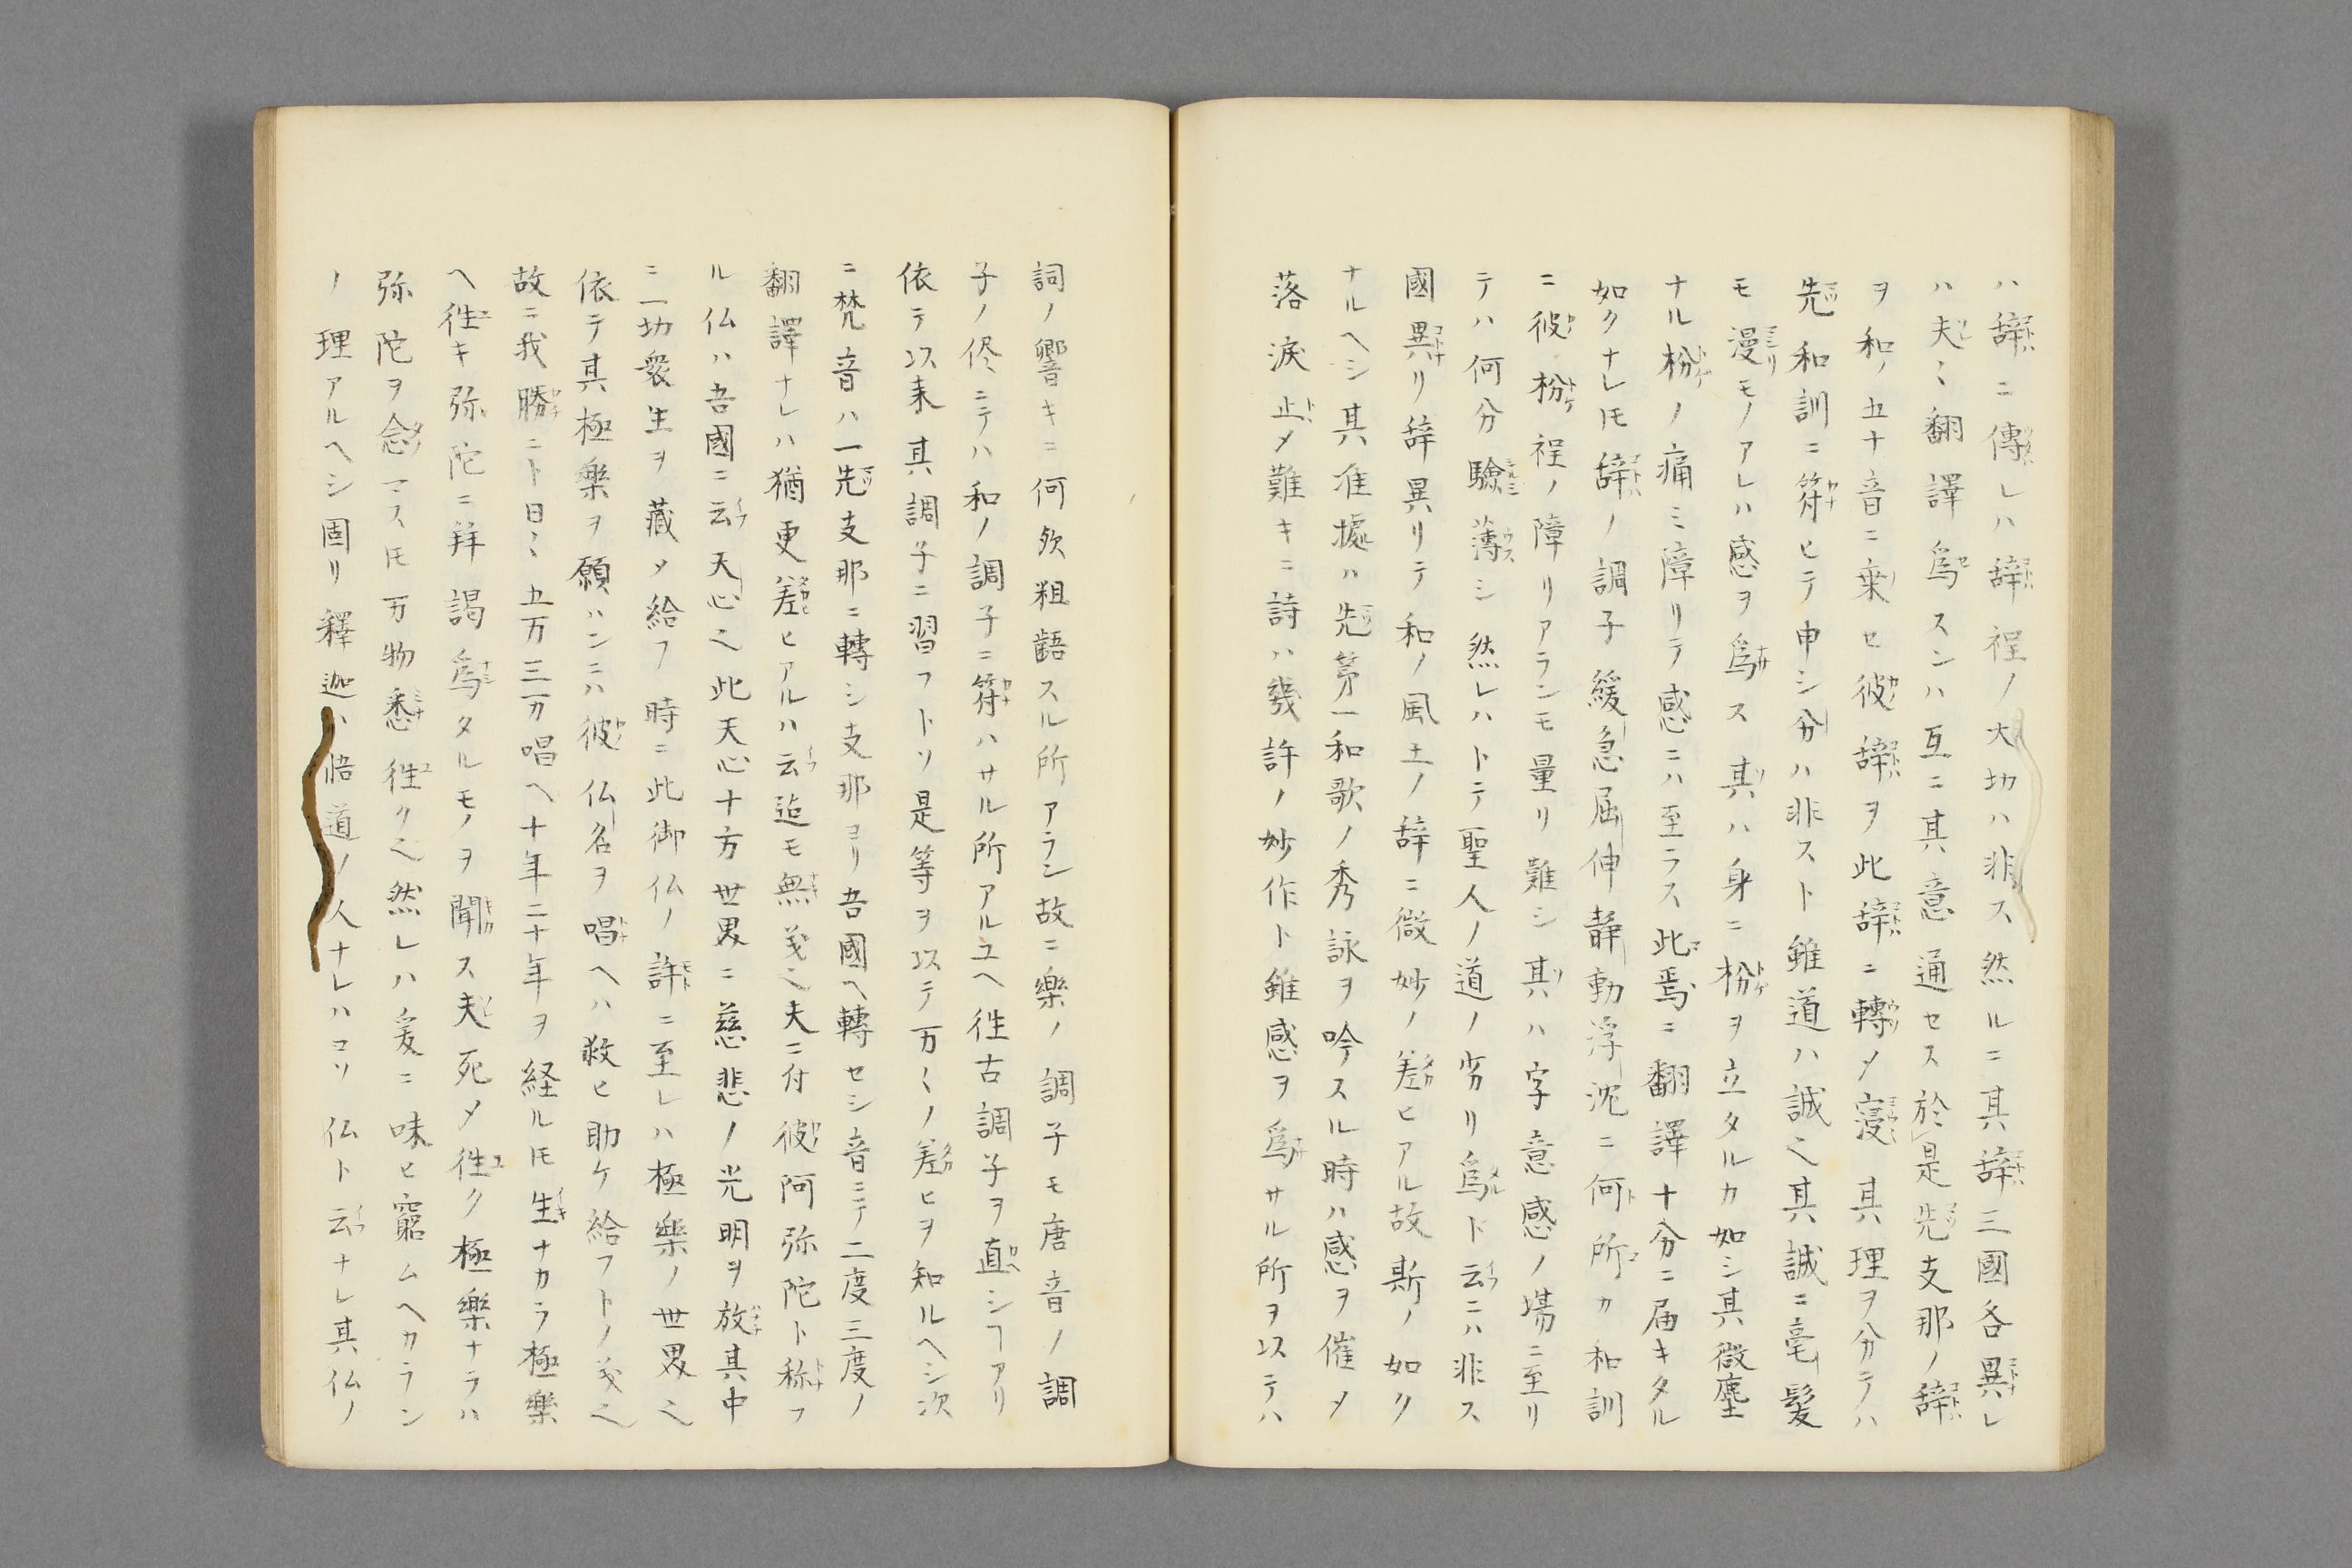 ハ辞ニ傳レハ辞程ノ大功ハ非ス然ルニ其辞三國各異レ
ハ夫〻翻譯爲スンハ互ニ其意通セス於是先支那ノ辞
ヲ和ノ五十音ニ乗セ彼辞ヲ此辞ニ轉メ寔其理ヲ分テハ
先和訓ニ符ヒテ申シ分ハ非スト雖道ハ誠之其誠ニ毫髪
モ漫モノアレハ感ヲ爲ス其ハ身ニ枌ヲ立タルカ如シ其微塵
ナル枌ノ痛ミ障リテ感ニハ至ラス此焉ニ翻譯十分ニ届キタル
如クナレ𪜈辞ノ調子緩急屈伸静動浮沈ニ何所カ和訓
ニ彼枌程ノ障リアランモ量リ難シ其ハ字意感ノ場ニ至リ
テハ何分驗薄シ然レハトテ聖人ノ道ノ劣リ爲ト云ニハ非ス
國異リ辞異リテ和ノ風土ノ辞ニ微妙ノ差ヒアル故斯ノ如ク
ナルヘシ其准據ハ先第一和歌ノ秀詠ヲ吟スル時ハ感ヲ催メ
落涙止メ難キニ詩ハ幾許ノ妙作ト雖感ヲ爲サル所ヲ以テハ
詞ノ響キニ何欤粗齬スル所アラン故ニ樂ノ調子モ唐音ノ調
子ノ侭ニテハ和ノ調子ニ符ハサル所アルユヘ往古調子ヲ直シヿアリ
依テ以来其調子ニ習フトソ是等ヲ以テ万〱ノ差ヒヲ知ルヘシ次
ニ梵音ハ一先支那ニ轉シ支那ヨリ吾國ヘ轉セシ音ニテ二度三度ノ
翻譯ナレハ猶更差ヒアルハ云迠モ無義之夫ニ付彼阿弥陀ト称フ
ル仏ハ吾國ニ云天心之此天心十方世界ニ慈悲ノ光明ヲ放其中
ニ一切衆生ヲ藏メ給フ時ニ此御仏ノ許ニ至レハ極樂ノ世界之
依テ其極樂ヲ願ハンニハ彼仏名ヲ唱ヘハ救ヒ助ケ給フトノ義之
故ニ我勝ニト日〻五万三万唱ヘ十年二十年ヲ経ル𪜈生ナカラ極樂
ヘ徃キ弥陀ニ拝謁爲タルモノヲ聞ス夫死メ徃ク極樂ナラハ
弥陀ヲ念マス𪜈万物悉徃ク之然レハ爰ニ味ヒ窮ムヘカラン
ノ理アルヘシ固リ釋迦ハ悟道ノ人ナレハコソ仏ト云ナレ其仏ノ